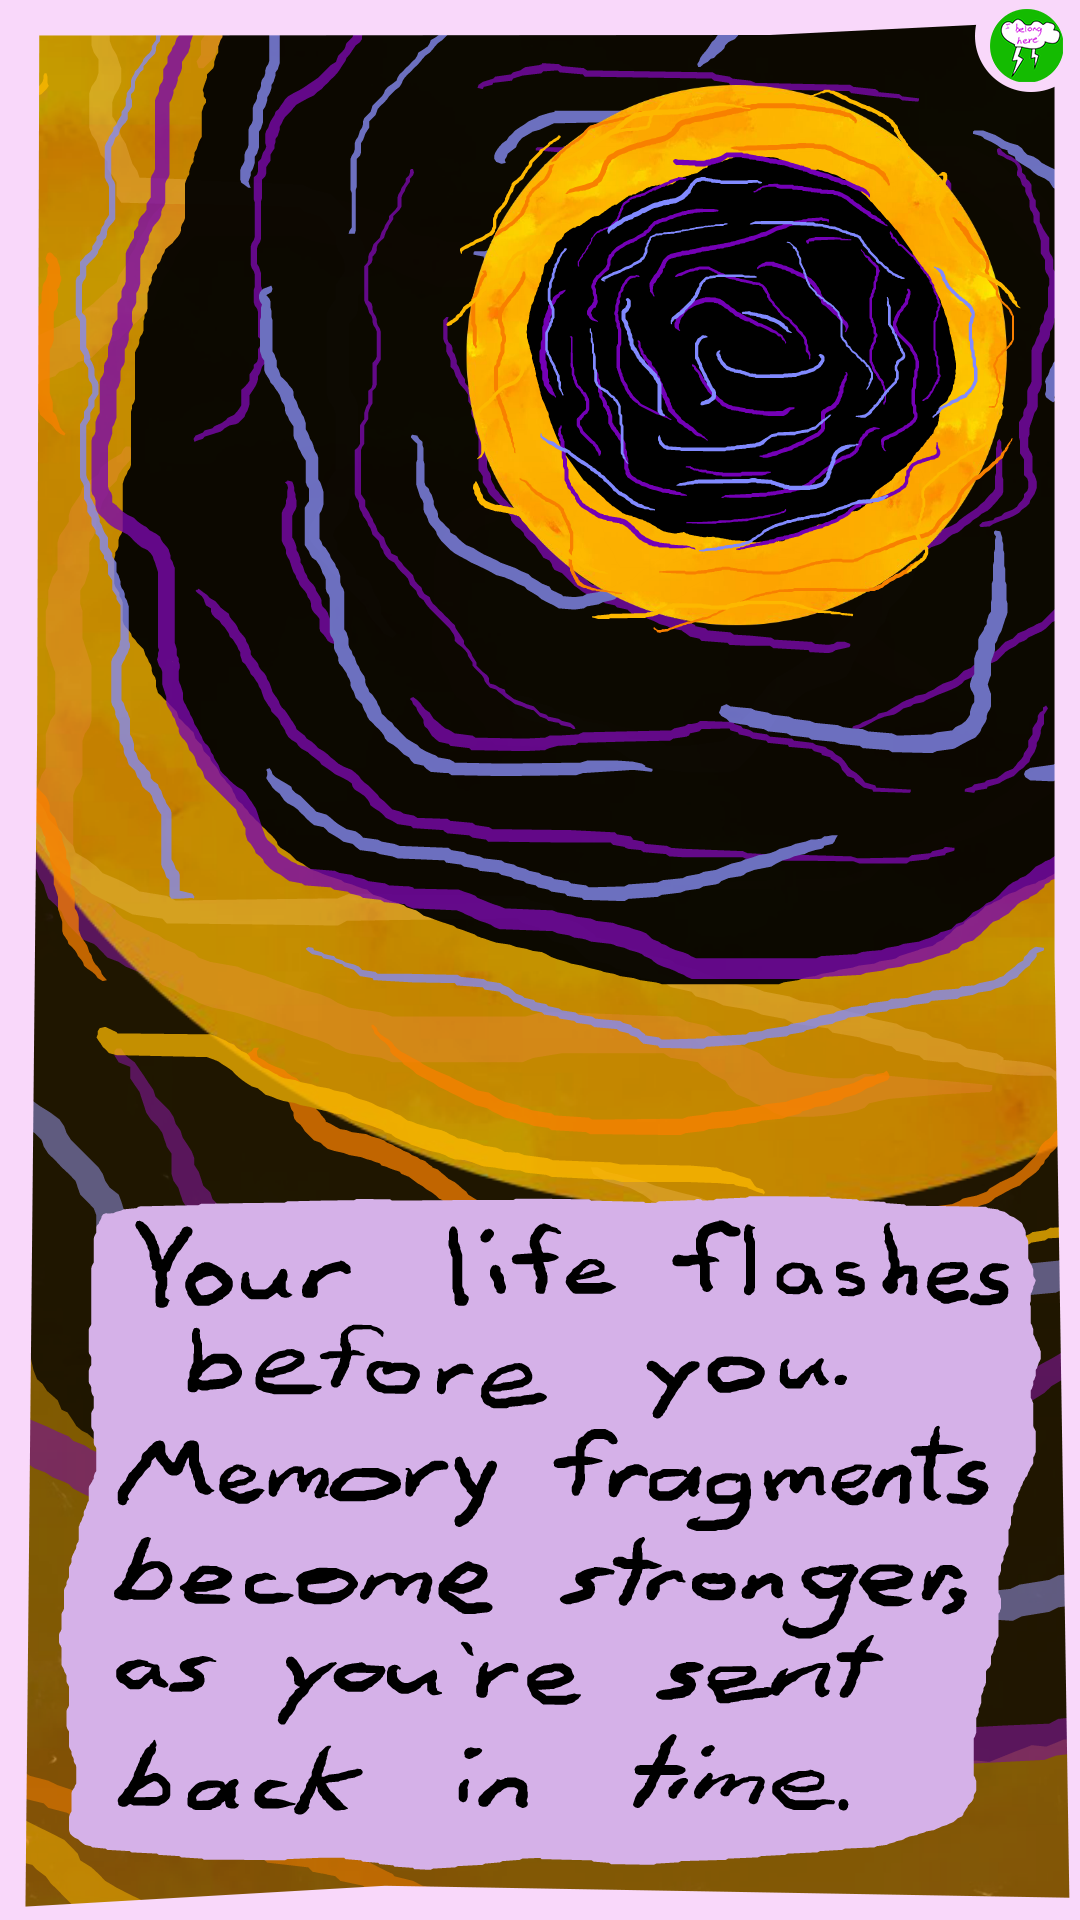 belong
here
Your life flashes
before you.
Memory fragments
become stronger,
as you're sent
back in time.